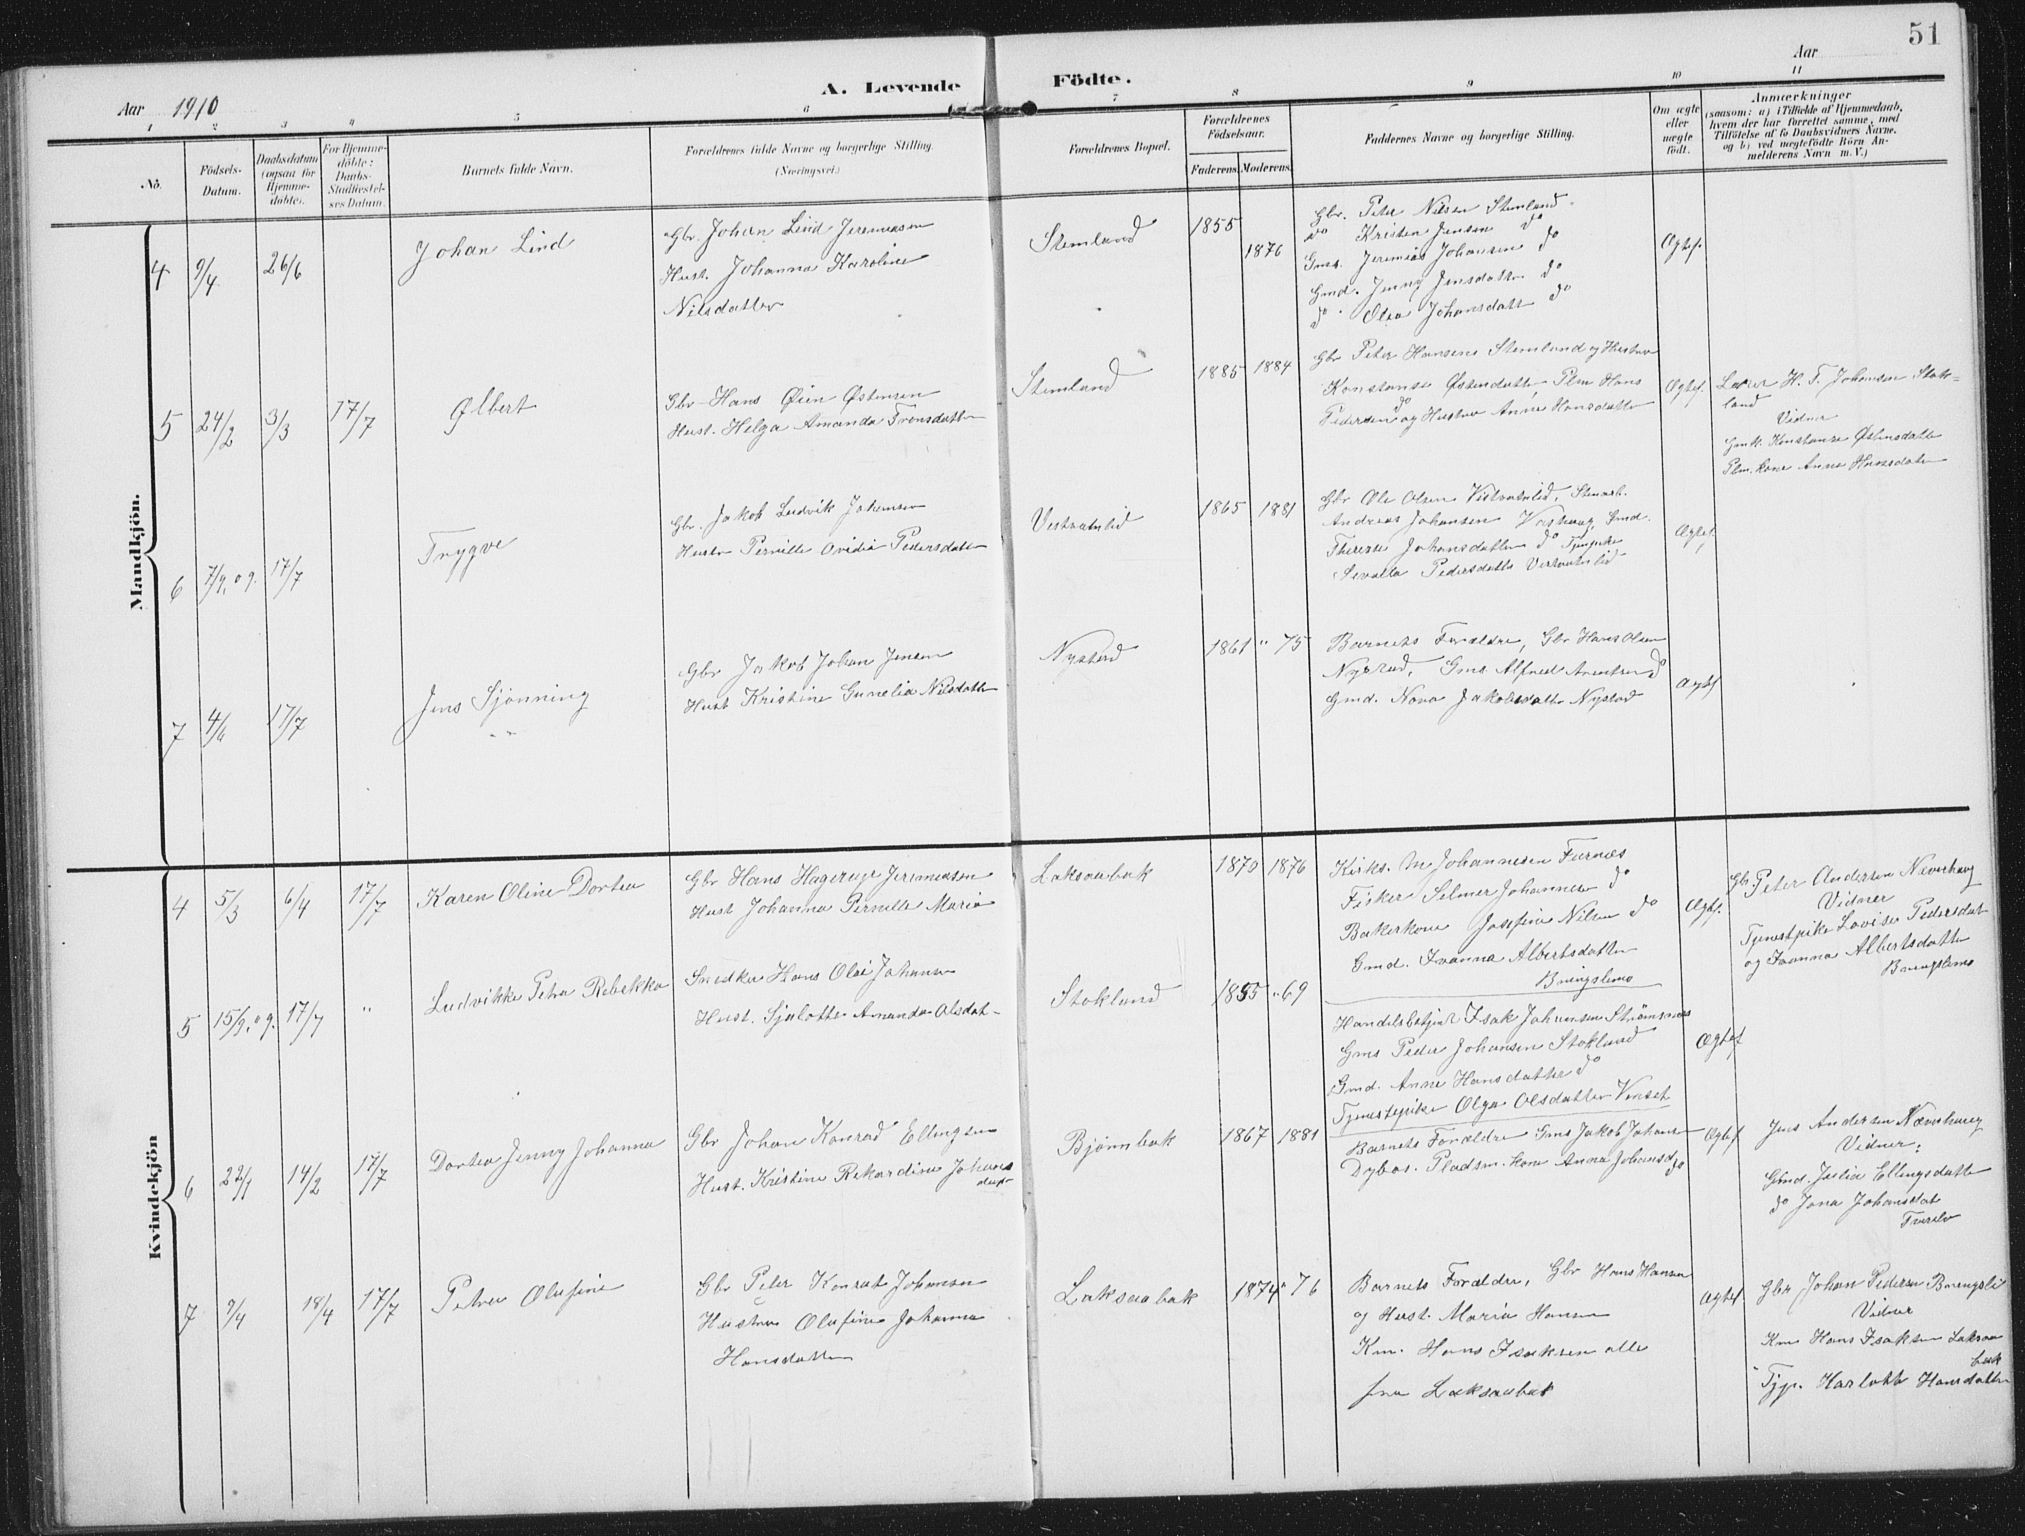 51
Aar 1910
A. Levende Födte.
Aar
1 2 3 4 5 6 7 8 9 10 11
No.
Födsels-
Datum.
Daabsdatum
(ogsaa for
Hjemme-
döbte).
For Hjemme-
döbte:
Daabs-
Stadfæstel-
ses Datum.
Barnets fulde Navn.
Forældrenes fulde Navne og borgerlige Stilling.
(Næringsvei.)
Forældrenes Bopæl.
Forældrenes
Födselsaar.
Faderens. Moderens.
Faddernes Navne og borgerlige Stilling.
Om ægte
eller
uægte
födt.
Anmærkninger
(saasom: a) i Tilfælde af Hjemmedaab,
hvem der har forrettet samme, med
Tilföielse af to Daabsvidners Navne.
og b) ved uægtefödte Börn An-
melderens Navn m. V.)
Mandkjön.
4 9/4 26/6
Johan Lind
Gbr. Johan Lind Jeremiasen
Hust. Johanna Karoline
Nilsdatter
Stemland
1855
1876
Gbr. Peter Nilsen Stemland
do Kristen Jensen do
Gms. Jeremias Johansen do
Gmd. Jenny Jensdatter do
do Olea Johansdatt do
Ægtef.
5 24/2 3/3 17/7
Albert
Gbr Hans Øien Østensen
Hust. Helga Amanda Tronsdatter
Stemland
1885 1884
Gbr Peter Hansens Stemland og Hustru
Konstanse Østensdatter Plm Hans
Pedersen do og Hustru Anne Hansdatter
Ægtef.
Lærer H. T. Johansen Stok-
land
Vidner
Gmk. Konstanse Østensdatter
Plm. kone Anne Hansdatter
6 7/9, 09. 17/7
Trygve
Gbr. Jakob Ludvik Johansen
Hustr Pernille Ovidia Pedersdatter
Vestvatnlid
1865 1881
Gbr Ole Olsen Vestvatnlid,
Andreas Johansen Gmd.
Therese Johansdatter do Tjenpike
Sevalla Pedersdatter Vestvatnlid
Ægtef.
7 4/6 17/7
Jens Sjönning
Gbr Jakob Johan Jensen
Hust Kristine Gunelia Nilsdatter
Nystad
1861 " 75
Barnets Forældre, Gbr Hans Olsen
Nystad, Gms Alfred Arentsen do
Gmd. Nova Jakobsdatter Nystad
Ægtf
Kvindekjön
4 5/3 6/4 17/7
Karen Oline Dortea
Gbr Hans Hagerup Jeremiasen
Hust Johanna Pernille Maria
Laksaabak
1870 1876
Kirks. M Johannesen Furnæs
Fisker Selmer Johannesen do
Bakerkone Josefine Nilsen do
Gmd. Ivanna Albertsdatter
Brengslemo
Ægtf.
Gbr Peter Andersen Næverhaug
Vidner
Tjenestpike Lovise Pedersdat
og Ivanna Albertsdatter
Brengslemo
5 15/9, 09. 17/7 "
Ludvikke Petra Rebekka
Snedker Hans Olai Johansen
Hust. Sjalotte Amanda Olsdat-
Stokland
1855 " 69
Handelsbetjent Isak Johansen Strömsnæs
Gms Peder Johansen Stokland
Gmd. Anne Hansdatter do
Tjenestepike Olga Olsdatter Venset
Ægtef
6 22/1 14/2 17/7
Dortea Jenny Johanna
Gbr Johan Konrad Ellingsen
Hust. Kristine Rekardine Johans
datter
Bjørnbak
1867 1881
Barnets Forældre Gms Jakob Johans
Dybos. Pladsm. kone Anna Johansd do
Ægtef
Jens Andersen Næverhaug
Vidner:
Gmd. Julia Ellingsdatter
do Jona Johansdat
Tverelv
7 9/4 18/4 17/7
Petra Olufine
Gbr Peter Konrat Johansen
Hustru Olufine Johanna
Hansdatter
Laksaabak
1874 " 76
Barnets Forældre, Gbr Hans Hansen
og Hust. Maria Hansen
Km. Hans Isaksen alle
fra Laksaabak
Ægtef.
Gbr Johan Pedersen Brengsli
Vidner
Km Hans Isaksen Laksaa
bak
Tjp. Harlotte Hansdatter